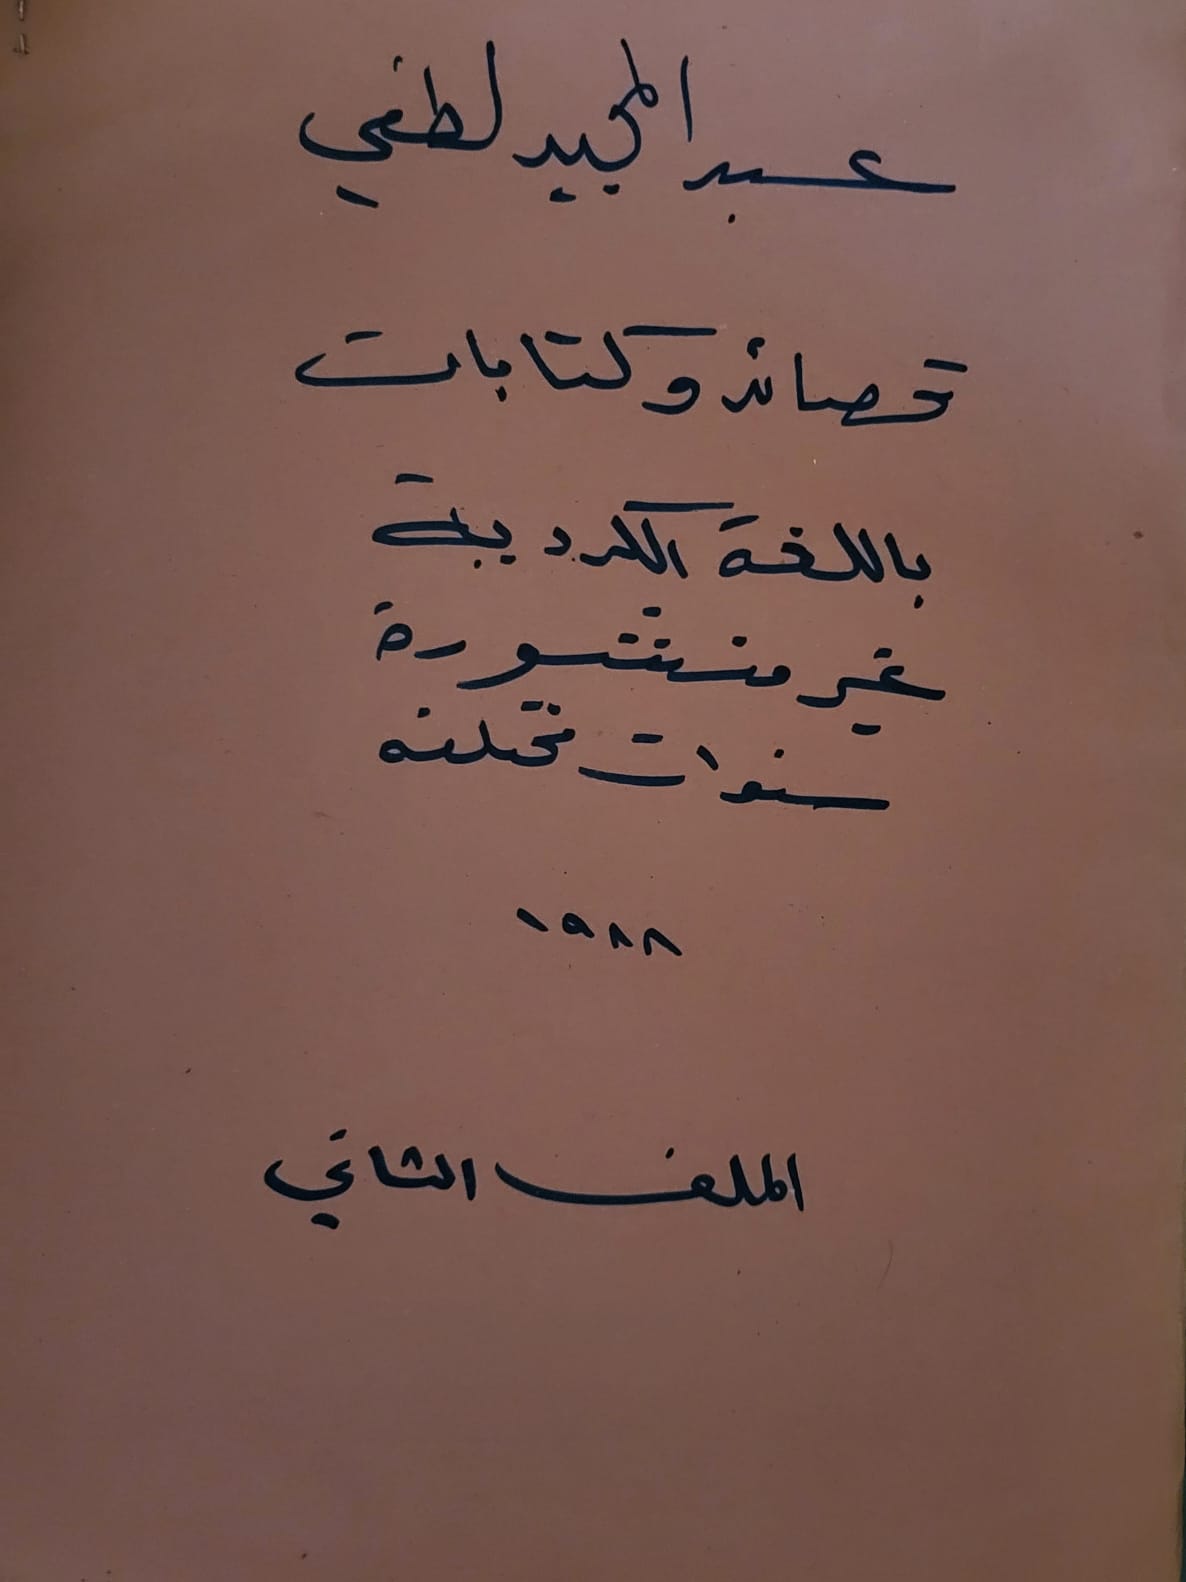 عبد المجيد لطفي
قصائد وكتابات
باللغة الكردية
غير منشورة
سنوات مختلفه
١٩٨٨
الملف الثاني